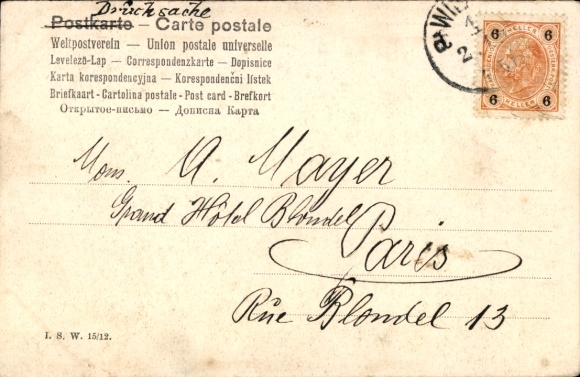 Drucksache
Postkarte — Carte postale
Weltpostverein — Union postale universelle
Levelező-Lap — Correspondenzkarte — Dopisnice
Karta korespondencyjna — Korespondenční lístek
Briefkaart - Cartolina postale - Post card - Brefkort
Открытое-письмо — Дописна Карта
6 6
HELLER
6 6
WIE
2
Mons. A. Mayer
Grand Hôtel Blondel
Paris
Rue Blondel 13
I. S. W. 15/12.